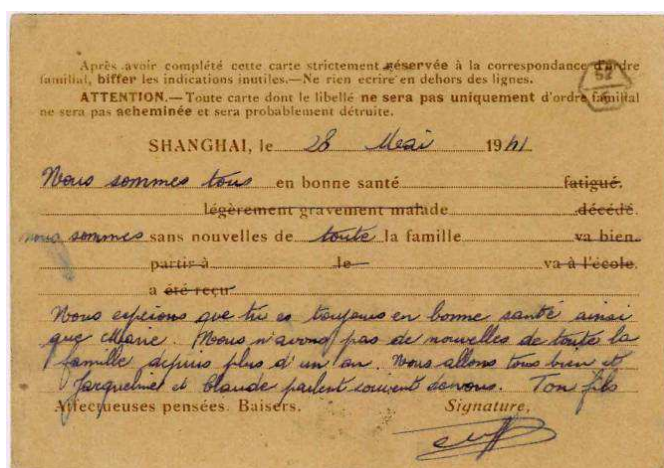 Après avoir complété cette carte strictement réservée à la correspondance d'ordre
familial, biffer les indications inutiles.—Ne rien ecrire en dehors des lignes.
ATTENTION.—Toute carte dont le libellé ne sera pas uniquement d'ordre familial
ne sera pas acheminée et sera probablement détruite.
52
SHANGHAI, le 28 Mai 1941
Nous sommes tous en bonne santé fatigué.
légèrement gravement malade décédé.
nous sommes sans nouvelles de toute la famille va bien.
partir à le va à l'école.
a été reçu
Nous espérons que tu es toujours en bonne santé ainsi
que Marie. Nous n'avons pas de nouvelles de toute la
famille depuis plus d'un an. Nous allons tous bien et
Jacqueline et Claude parlent souvent de vous. Ton fils
Affectueuses pensées. Baisers. Signature,